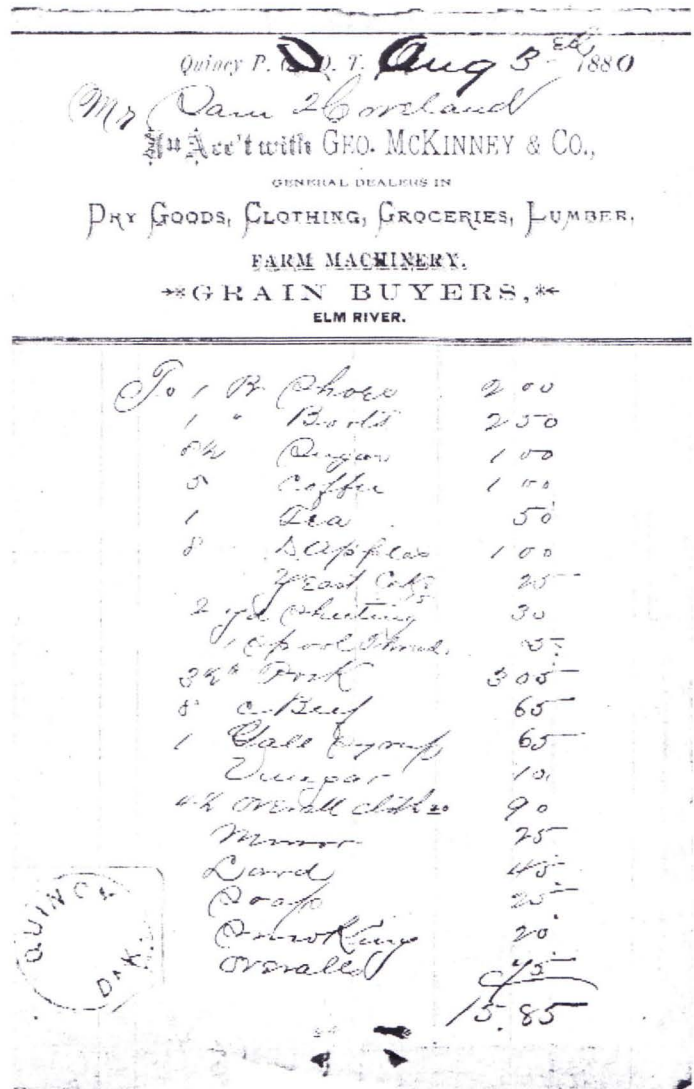 Quincy P. O. D. T. Aug 3rd 1880
Mr Sam
In Acc't with GEO. MCKINNEY & CO.,
GENERAL DEALERS IN
DRY GOODS, CLOTHING, GROCERIES, LUMBER,
FARM MACHINERY.
GRAIN BUYERS,
ELM RIVER.
To 1 Pr Shoes 2 00
1 " Boots 2 50
8½ Sugar 1 00
5 Coffee 1 00
1 Tea 50
8 D Apples 1 00
Yeast Cake 25
2 yd Sheeting 30
1 Spool Thread 5
Pork 3 05
8 C Beef 65
1 Gall Syrup 65
Vinegar 10
4½ Overall cloth 20 90
Mirror 25
Lard 45
Soap 25
Smoking 20
Overalls 75
15.85
QUINCY
DAK.